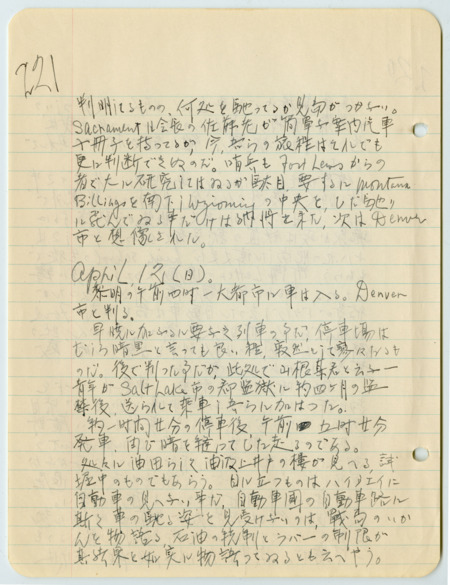 221
判明してるものの、何処を馳ってるか見当がつかない。
Sacramento 会長の佐藤氏が簡単な案内汽車
冊子を持ってるが、今、吾らの旅程はそれでも
更に判断できぬのだ。哨兵も Fort Lewis からの
者で大して研究してはゐるが駄目、要するに Montana
Billings を南下し Wyoming の中央を、ひた馳り
に飛んでゐる事だけは納得出来た、次は Denver
市と想像された。
April 12 (日).
黎明の午前四時一大都市に車は入る。Denver
市と判る。
早暁に加ふるに要予定列車の事だ、停車場は
むしろ暗黒と言っても良い程、寂然として寥々たるも
のだ。後で判った事だが、此処で山根某君と云ふ一
青年が Salt Lake 市の郡監獄に約四ヶ月の監
禁後、送られて乗車し吾らに加はった。
約一時間廿分の停車後 午前 五時廿分
発車、再び暗を縫ってひた走るのである。
処々に油田らしく油汲上井戸の櫓が見へる、試
掘中のものでもあらう。目に立つものはハイウエイに
自動車の見へない事だ、自動車国の自動車路に
斯く車の馳る姿を見受けないのは、戦局のいか
んを物語る、石油の統制とラバーの制限が
其結果を如実に物語ってゐるとも云へやう。